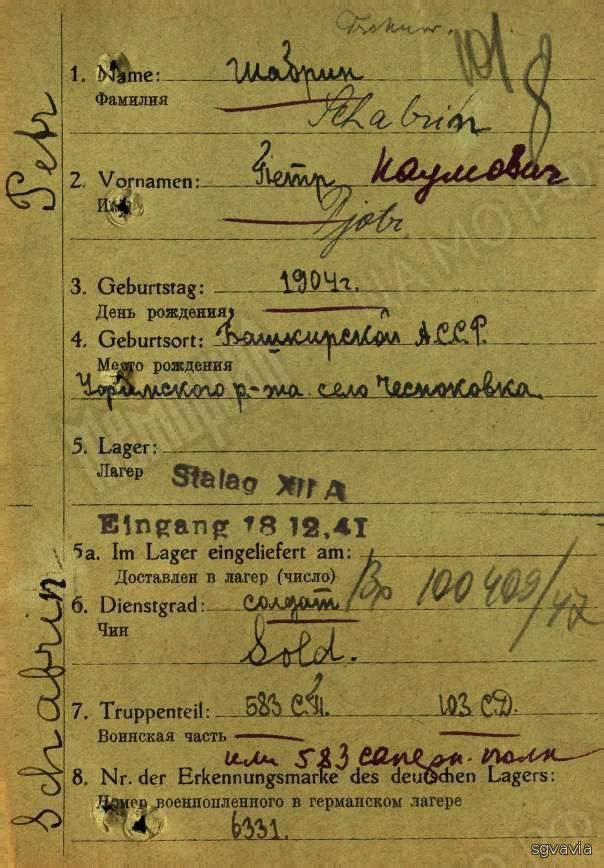 101
1. Name: Шабрин
Фамилия
Schabrin
2. Vornamen: Петр Наумович
Имя
Pjotr
Petr
3. Geburtstag: 1904 г.
День рождения
4. Geburtsort: Башкирской АССР.
Место рождения
Уфимского р-на село Чесноковка.
5. Lager:
Лагер
Stalag XII A
Eingang 18 12.41
5a. Im Lager eingeliefert am:
Доставлен в лагер (число)
6. Dienstgrad: солдат
100409/47
Чин
Sold.
Schabrin
7. Truppenteil: 583 С.П. 103 СД.
Воинская часть
или 583 саперн. полк
8. Nr. der Erkennungsmarke des deutschen Lagers:
Номер военнопленного в германском лагере
6331.
sgvavia